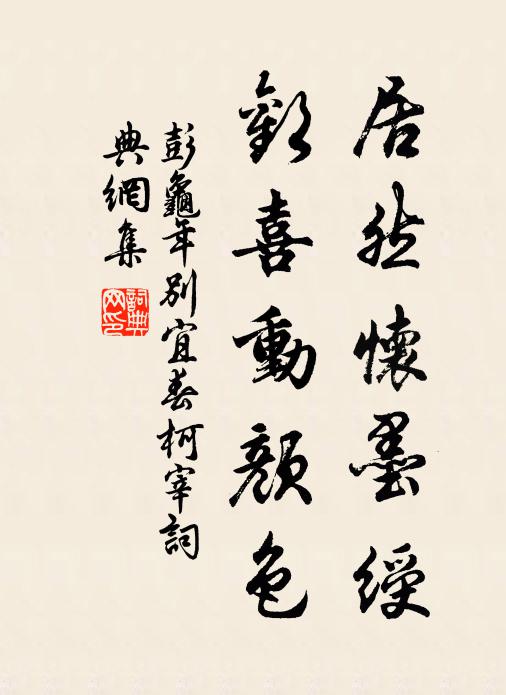 居然懷墨綬
歡喜動顏色
彭龜年別宜春柯宰詞
典網集
詞典網印